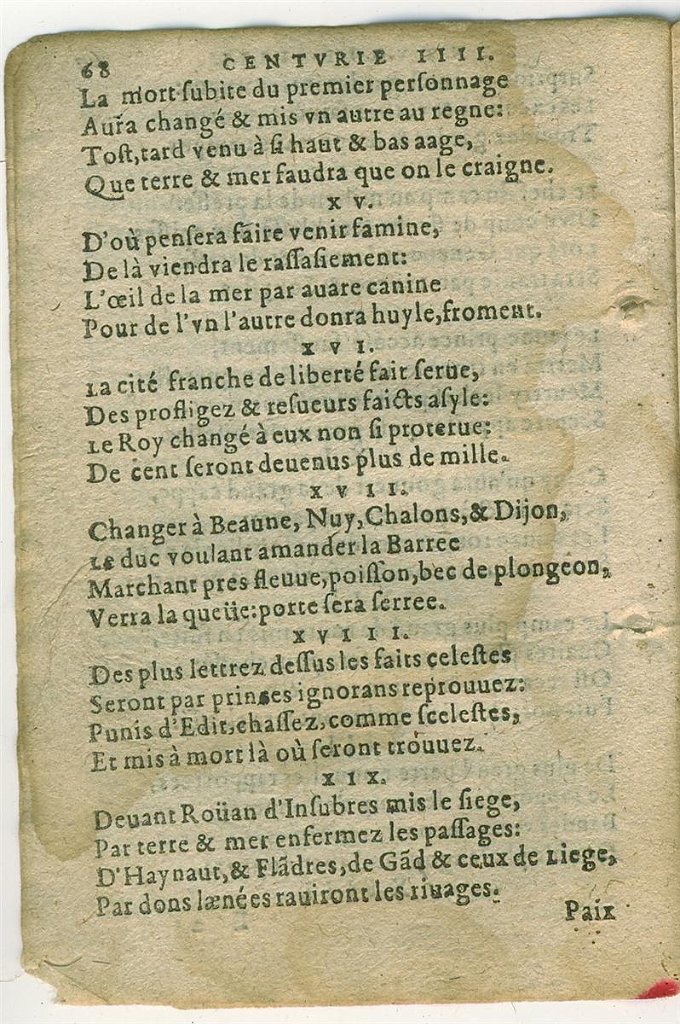 68 CENTVRIE IIII.
La mort ſubite du premier perſonnage
Aura changé & mis vn autre au regne:
Toſt,tard venu à ſi haut & bas aage,
Que terre & mer faudra que on le craigne.
XV.
D'où penſera faire venir famine,
De là viendra le raſſaſiement:
L'œil de la mer par auare canine
Pour de l'vn l'autre donra huyle,froment.
XVI.
La cité franche de liberté fait ſerue,
Des profligez & reſueurs faicts aſyle:
Le Roy changé à eux non ſi proterue:
De cent ſeront deuenus plus de mille.
XVII.
Changer à Beaune, Nuy,Chalons,& Dijon,
Le duc voulant amander la Barree
Marchant pres fleuue,poiſſon,bec de plongeon,
Verra la queüe:porte ſera ſerree.
XVIII.
Des plus lettrez deſſus les faits celeſtes
Seront par princes ignorans reprouuez:
Punis d'Edit,chaſſez,comme ſceleſtes,
Et mis à mort là où ſeront trouuez.
XIX.
Deuant Roüan d'Inſubres mis le ſiege,
Par terre & mer enfermez les paſſages:
D'Haynaut,& Flãdres,de Gãd & ceux de Liege,
Par dons lænées rauiront les riuages.
Paix